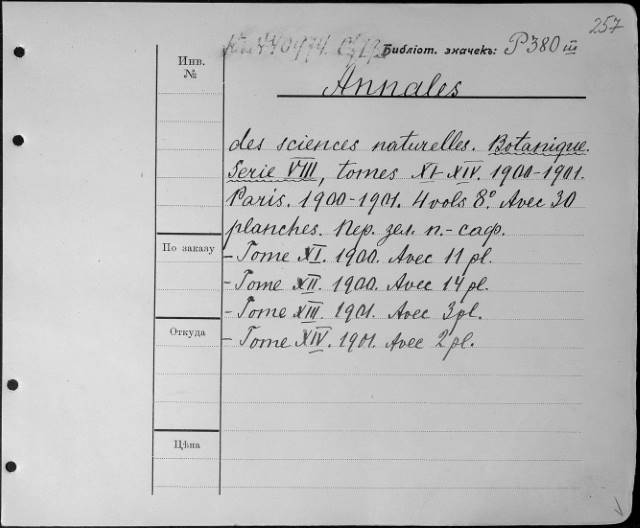 257
Инв.
№
Библіот. значекъ: P380 III
Annales
des sciences naturelles. Botanique.
Serie VIII, tomes XI-XIV. 1900-1901.
Paris. 1900-1901. 4 vols 8°. Avec 30
planches. Пер. зел. п.-саф.
По заказу
- Tome XI. 1900. Avec 11 pl.
- Tome XII. 1900. Avec 14 pl.
- Tome XIII. 1901. Avec 3 pl.
Откуда
- Tome XIV. 1901. Avec 2 pl.
Цѣна